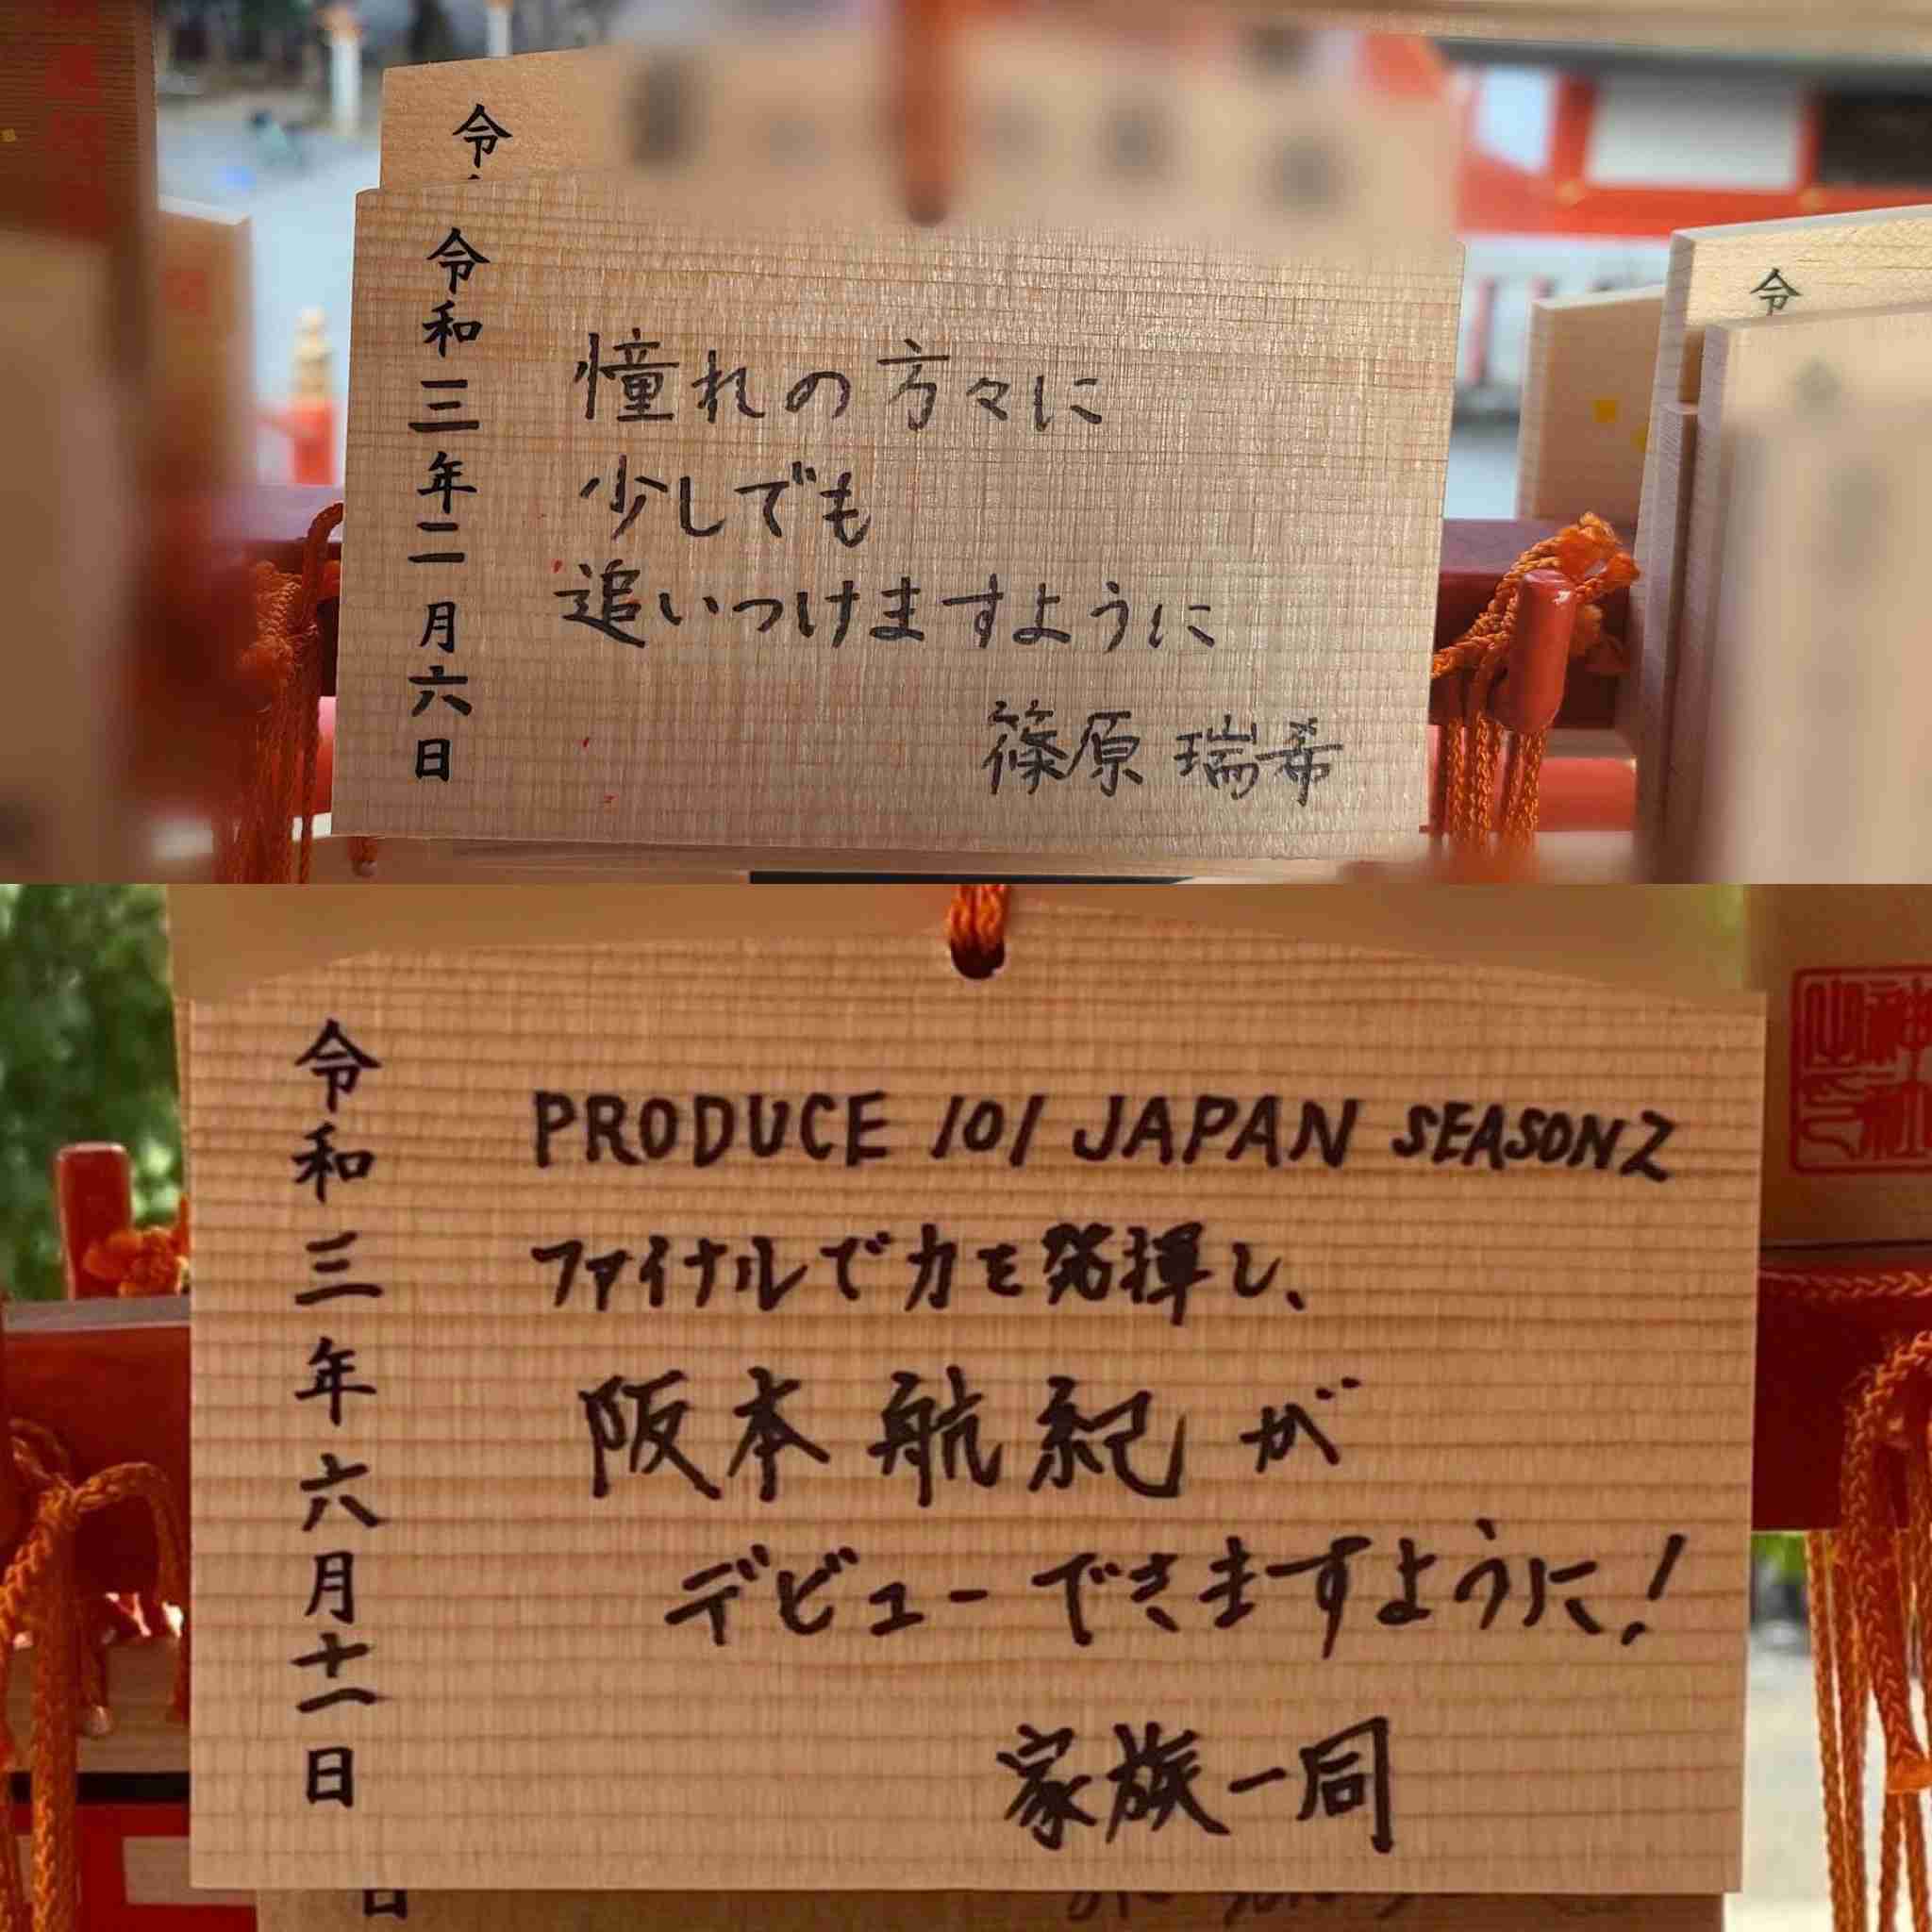 令
令和三年二月六日
憧れの方々に
少しでも
追いつけますように
篠原 瑞希
令
令和三年六月十一日
PRODUCE 101 JAPAN SEASON2
ファイナルで力を発揮し、
阪本航紀が
デビューできますように!
家族一同
日